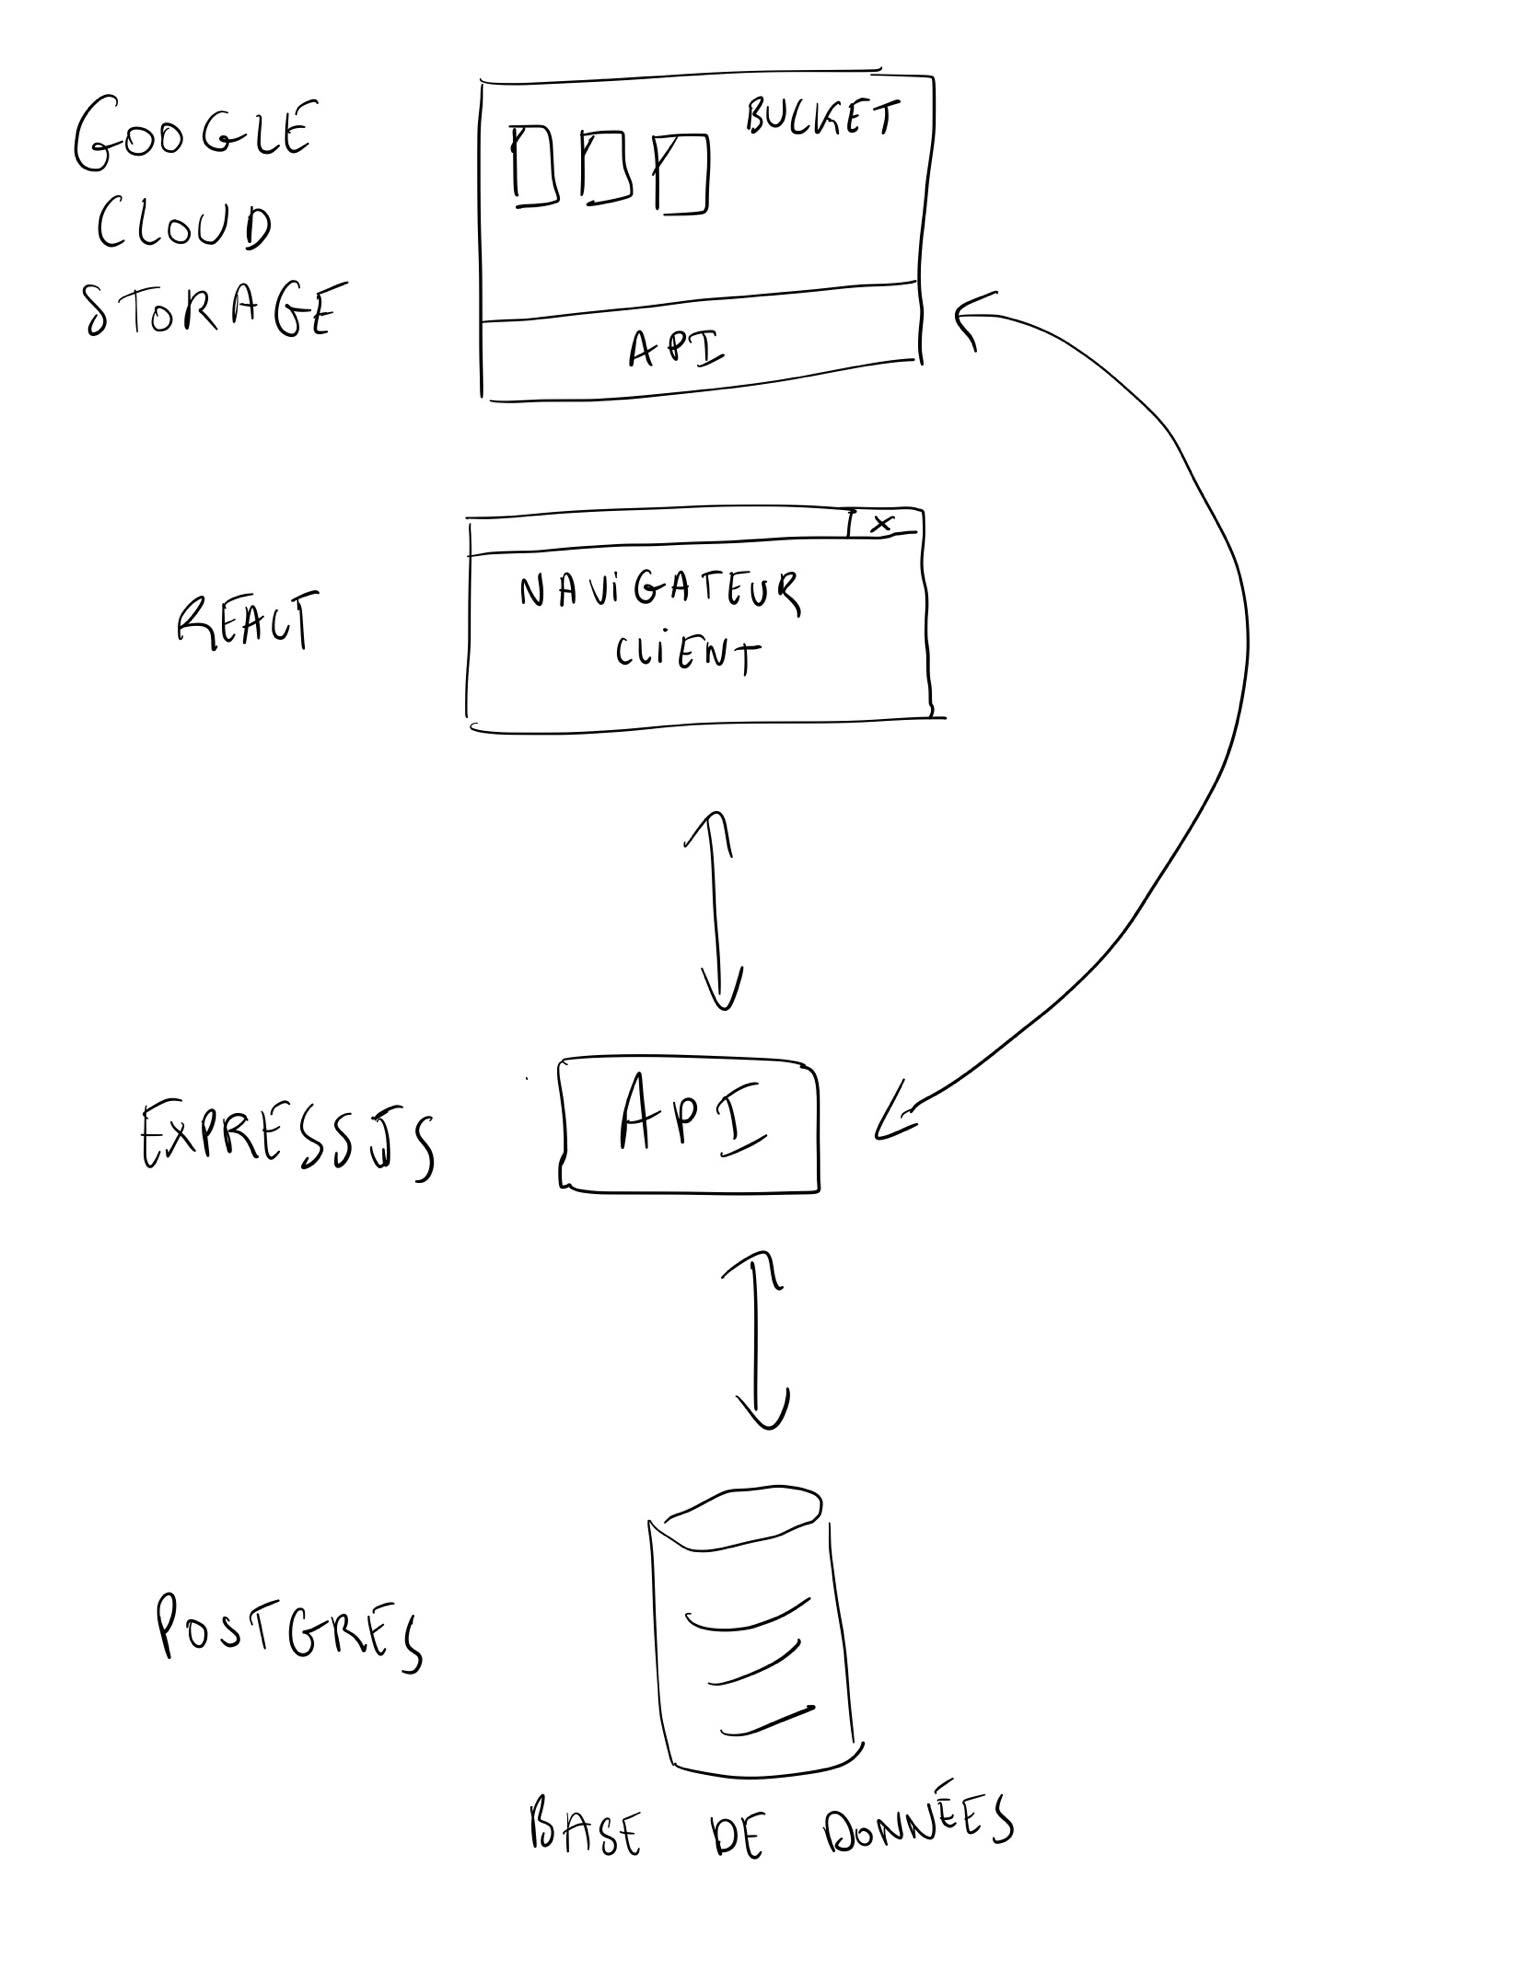 GOOGLE
CLOUD
STORAGE
BUCKET
API
X
REACT
NAViGATEUR
CLiENT
EXPRESSJS
API
POSTGRES
BASE DE DONNÉES